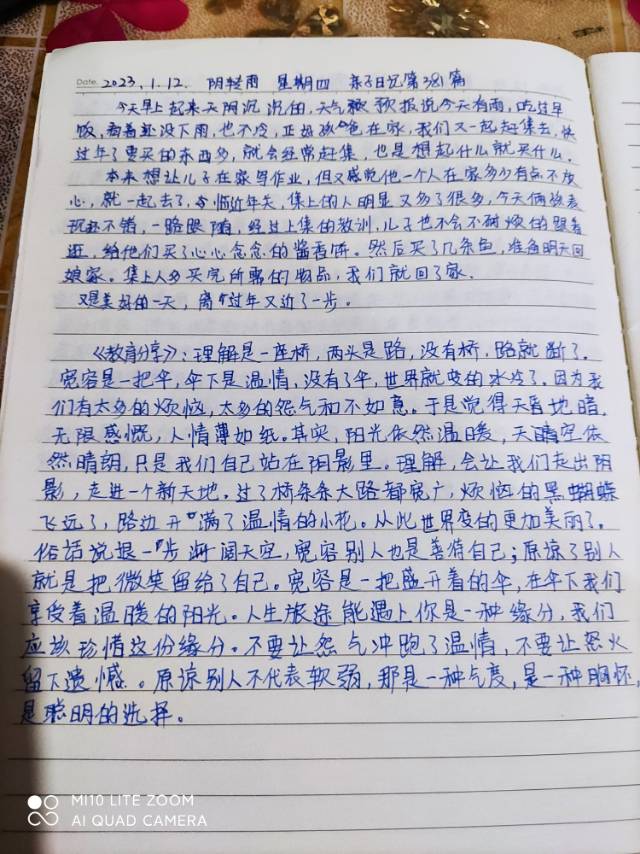 Date. 2023.1.12. 阴转雨 星期四 亲子日记第381篇
今天早上起来天阴沉沉的,天气预报说今天有雨,吃过早
饭,看着还没下雨,也不冷,正好孩爸在家,我们又一起赶集去,快
过年了要买的东西多,就会经常赶集,也是想起什么就买什么。
本来想让儿子在家写作业,但又感觉他一个人在家多少有点不放
心,就一起去了,临近年关,集上的人明显又多了很多,今天俩孩表
现都不错,一路跟随,经过上集的教训,儿子也不会不耐烦的跟着
逛,给他们买了心心念念的酱香饼。然后买了几条鱼,准备明天回
娘家。集上人多买完所需的物品,我们就回了家.
又是美好的一天,离过年又近了一步。
《教育分享》:理解是一座桥,两头是路,没有桥,路就断了.
宽容是一把伞,伞下是温情,没有了伞,世界就变的冰冷了.因为我
们有太多的烦恼,太多的怨气和不如意。于是觉得天昏地暗.
无限感慨,人情薄如纸。其实,阳光依然温暖,天晴空依
然晴朗,只是我们自己站在阴影里。理解,会让我们走出阴
影,走进一个新天地。过了桥条条大路都宽广,烦恼的黑蝴蝶
飞远了,路边开满了温情的小花。从此世界变的更加美丽了。
俗话说退一步海阔天空,宽容别人也是善待自己;原谅了别人
就是把微笑留给了自己。宽容是一把盛开着的伞,在伞下我们
享受着温暖的阳光。人生旅途能遇上你是一种缘分,我们
应该珍惜这份缘分。不要让怨气冲跑了温情,不要让怒火
留下遗憾。原谅别人不代表软弱,那是一种气度,是一种胸怀,
是聪明的选择。
MI 10 LITE ZOOM
AI QUAD CAMERA